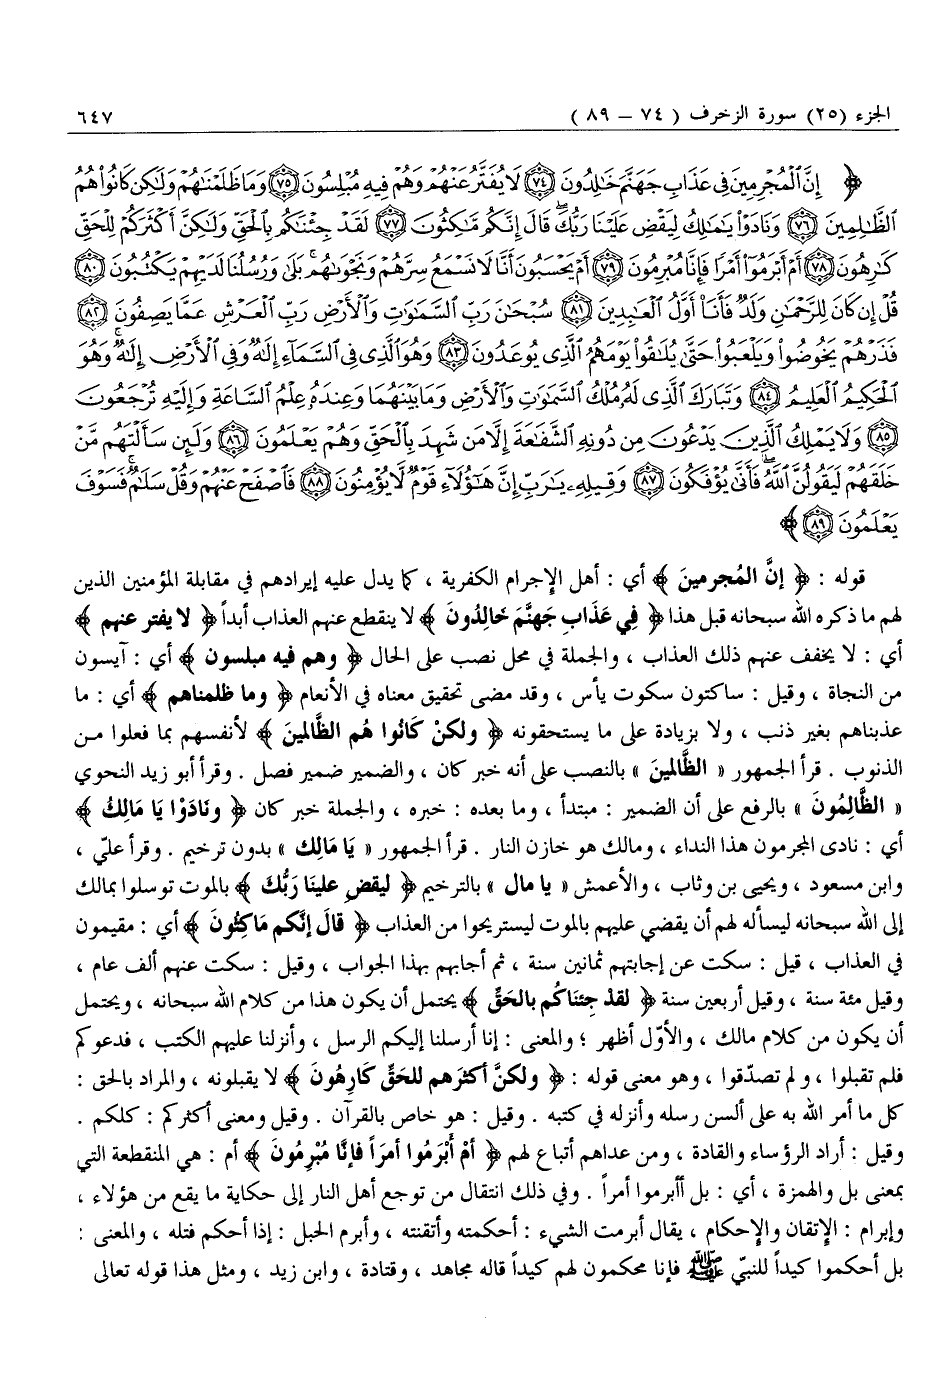 الجزء (٢٥) سورة الزخرف ( ٧٤ – ٨٩ ) ٦٤٧
﴿ إِنَّ الْمُجْرِمِينَ فِي عَذَابِ جَهَنَّمَ خَالِدُونَ ﴿٧٤﴾ لَا يُفَتَّرُ عَنْهُمْ وَهُمْ فِيهِ مُبْلِسُونَ ﴿٧٥﴾ وَمَا ظَلَمْنَاهُمْ وَلَٰكِن كَانُوا هُمُ
الظَّالِمِينَ ﴿٧٦﴾ وَنَادَوْا يَا مَالِكُ لِيَقْضِ عَلَيْنَا رَبُّكَ ۖ قَالَ إِنَّكُم مَّاكِثُونَ ﴿٧٧﴾ لَقَدْ جِئْنَاكُم بِالْحَقِّ وَلَٰكِنَّ أَكْثَرَكُمْ لِلْحَقِّ
كَارِهُونَ ﴿٧٨﴾ أَمْ أَبْرَمُوا أَمْرًا فَإِنَّا مُبْرِمُونَ ﴿٧٩﴾ أَمْ يَحْسَبُونَ أَنَّا لَا نَسْمَعُ سِرَّهُمْ وَنَجْوَاهُم ۚ بَلَىٰ وَرُسُلُنَا لَدَيْهِمْ يَكْتُبُونَ ﴿٨٠﴾
قُلْ إِن كَانَ لِلرَّحْمَٰنِ وَلَدٌ فَأَنَا أَوَّلُ الْعَابِدِينَ ﴿٨١﴾ سُبْحَانَ رَبِّ السَّمَاوَاتِ وَالْأَرْضِ رَبِّ الْعَرْشِ عَمَّا يَصِفُونَ ﴿٨٢﴾
فَذَرْهُمْ يَخُوضُوا وَيَلْعَبُوا حَتَّىٰ يُلَاقُوا يَوْمَهُمُ الَّذِي يُوعَدُونَ ﴿٨٣﴾ وَهُوَ الَّذِي فِي السَّمَاءِ إِلَٰهٌ وَفِي الْأَرْضِ إِلَٰهٌ ۚ وَهُوَ
الْحَكِيمُ الْعَلِيمُ ﴿٨٤﴾ وَتَبَارَكَ الَّذِي لَهُ مُلْكُ السَّمَاوَاتِ وَالْأَرْضِ وَمَا بَيْنَهُمَا وَعِندَهُ عِلْمُ السَّاعَةِ وَإِلَيْهِ تُرْجَعُونَ
﴿٨٥﴾ وَلَا يَمْلِكُ الَّذِينَ يَدْعُونَ مِن دُونِهِ الشَّفَاعَةَ إِلَّا مَن شَهِدَ بِالْحَقِّ وَهُمْ يَعْلَمُونَ ﴿٨٦﴾ وَلَئِن سَأَلْتَهُم مَّنْ
خَلَقَهُمْ لَيَقُولُنَّ اللَّهُ ۖ فَأَنَّىٰ يُؤْفَكُونَ ﴿٨٧﴾ وَقِيلِهِ يَا رَبِّ إِنَّ هَٰؤُلَاءِ قَوْمٌ لَّا يُؤْمِنُونَ ﴿٨٨﴾ فَاصْفَحْ عَنْهُمْ وَقُلْ سَلَامٌ ۚ فَسَوْفَ
يَعْلَمُونَ ﴿٨٩﴾ ﴾
قوله : ﴿ إنَّ المُجرمينَ ﴾ أي : أهل الإجرام الكفرية ، كما يدل عليه إيرادهم في مقابلة المؤمنين الذين
لهم ما ذكره الله سبحانه قبل هذا ﴿ فِي عَذَابِ جَهَنَّمَ خَالِدُونَ ﴾ لا ينقطع عنهم العذاب أبداً ﴿ لا يفتر عنهم ﴾
أي : لا يخفف عنهم ذلك العذاب ، والجملة في محل نصب على الحال ﴿ وهم فيه مبلسون ﴾ أي : آيسون
من النجاة ، وقيل : ساكتون سكوت يأس ، وقد مضى تحقيق معناه في الأنعام ﴿ وما ظلمناهم ﴾ أي : ما
عذبناهم بغير ذنب ، ولا بزيادة على ما يستحقونه ﴿ ولكنْ كَانُوا هُم الظَّالمينَ ﴾ لأنفسهم بما فعلوا من
الذنوب . قرأ الجمهور « الظَّالمينَ » بالنصب على أنه خبر كان ، والضمير ضمير فصل . وقرأ أبو زيد النحوي
« الظَّالِمُونَ » بالرفع على أن الضمير : مبتدأ ، وما بعده : خبره ، والجملة خبر كان ﴿ ونَادَوْا يَا مَالِكُ ﴾
أي : نادى المجرمون هذا النداء ، ومالك هو خازن النار . قرأ الجمهور « يَا مَالِك » بدون ترخيم . وقرأ عليّ ،
وابن مسعود ، ويحيى بن وثاب ، والأعمش « يا مال » بالترخيم ﴿ ليقضِ علينا رَبُّكَ ﴾ بالموت توسلوا بمالك
إلى الله سبحانه ليسأله لهم أن يقضي عليهم بالموت ليستريحوا من العذاب ﴿ قَالَ إنَّكم مَاكِثُونَ ﴾ أي : مقيمون
في العذاب ، قيل : سكت عن إجابتهم ثمانين سنة ، ثم أجابهم بهذا الجواب ، وقيل : سكت عنهم ألف عام ،
وقيل مئة سنة ، وقيل أربعين سنة ﴿ لقدْ جِئنَاكُم بالحَقِّ ﴾ يحتمل أن يكون هذا من كلام الله سبحانه ، ويحتمل
أن يكون من كلام مالك ، والأوّل أظهر ؛ والمعنى : إنا أرسلنا إليكم الرسل ، وأنزلنا عليهم الكتب ، فدعوكم
فلم تقبلوا ، ولم تصدّقوا ، وهو معنى قوله : ﴿ ولكنَّ أكثرَهم للحَقِّ كَارِهُونَ ﴾ لا يقبلونه ، والمراد بالحق :
كل ما أمر الله به على ألسن رسله وأنزله في كتبه . وقيل : هو خاص بالقرآن . وقيل ومعنى أكثركم : كلكم .
وقيل : أراد الرؤساء والقادة ، ومن عداهم أتباع لهم ﴿ أمْ أَبْرَمُوا أمرَاً فإنَّا مُبْرِمُونَ ﴾ أم : هي المنقطعة التي
بمعنى بل والهمزة ، أي : بل أأبرموا أمراً . وفي ذلك انتقال من توجع أهل النار إلى حكاية ما يقع من هؤلاء ،
وإبرام : الإتقان والإحكام ، يقال أبرمت الشيء : أحكمته وأتقنته ، وأبرم الحبل : إذا أحكم فتله ، والمعنى :
بل أحكموا كيداً للنبيّ ﷺ فإنا محكمون لهم كيداً قاله مجاهد ، وقتادة ، وابن زيد ، ومثل هذا قوله تعالى